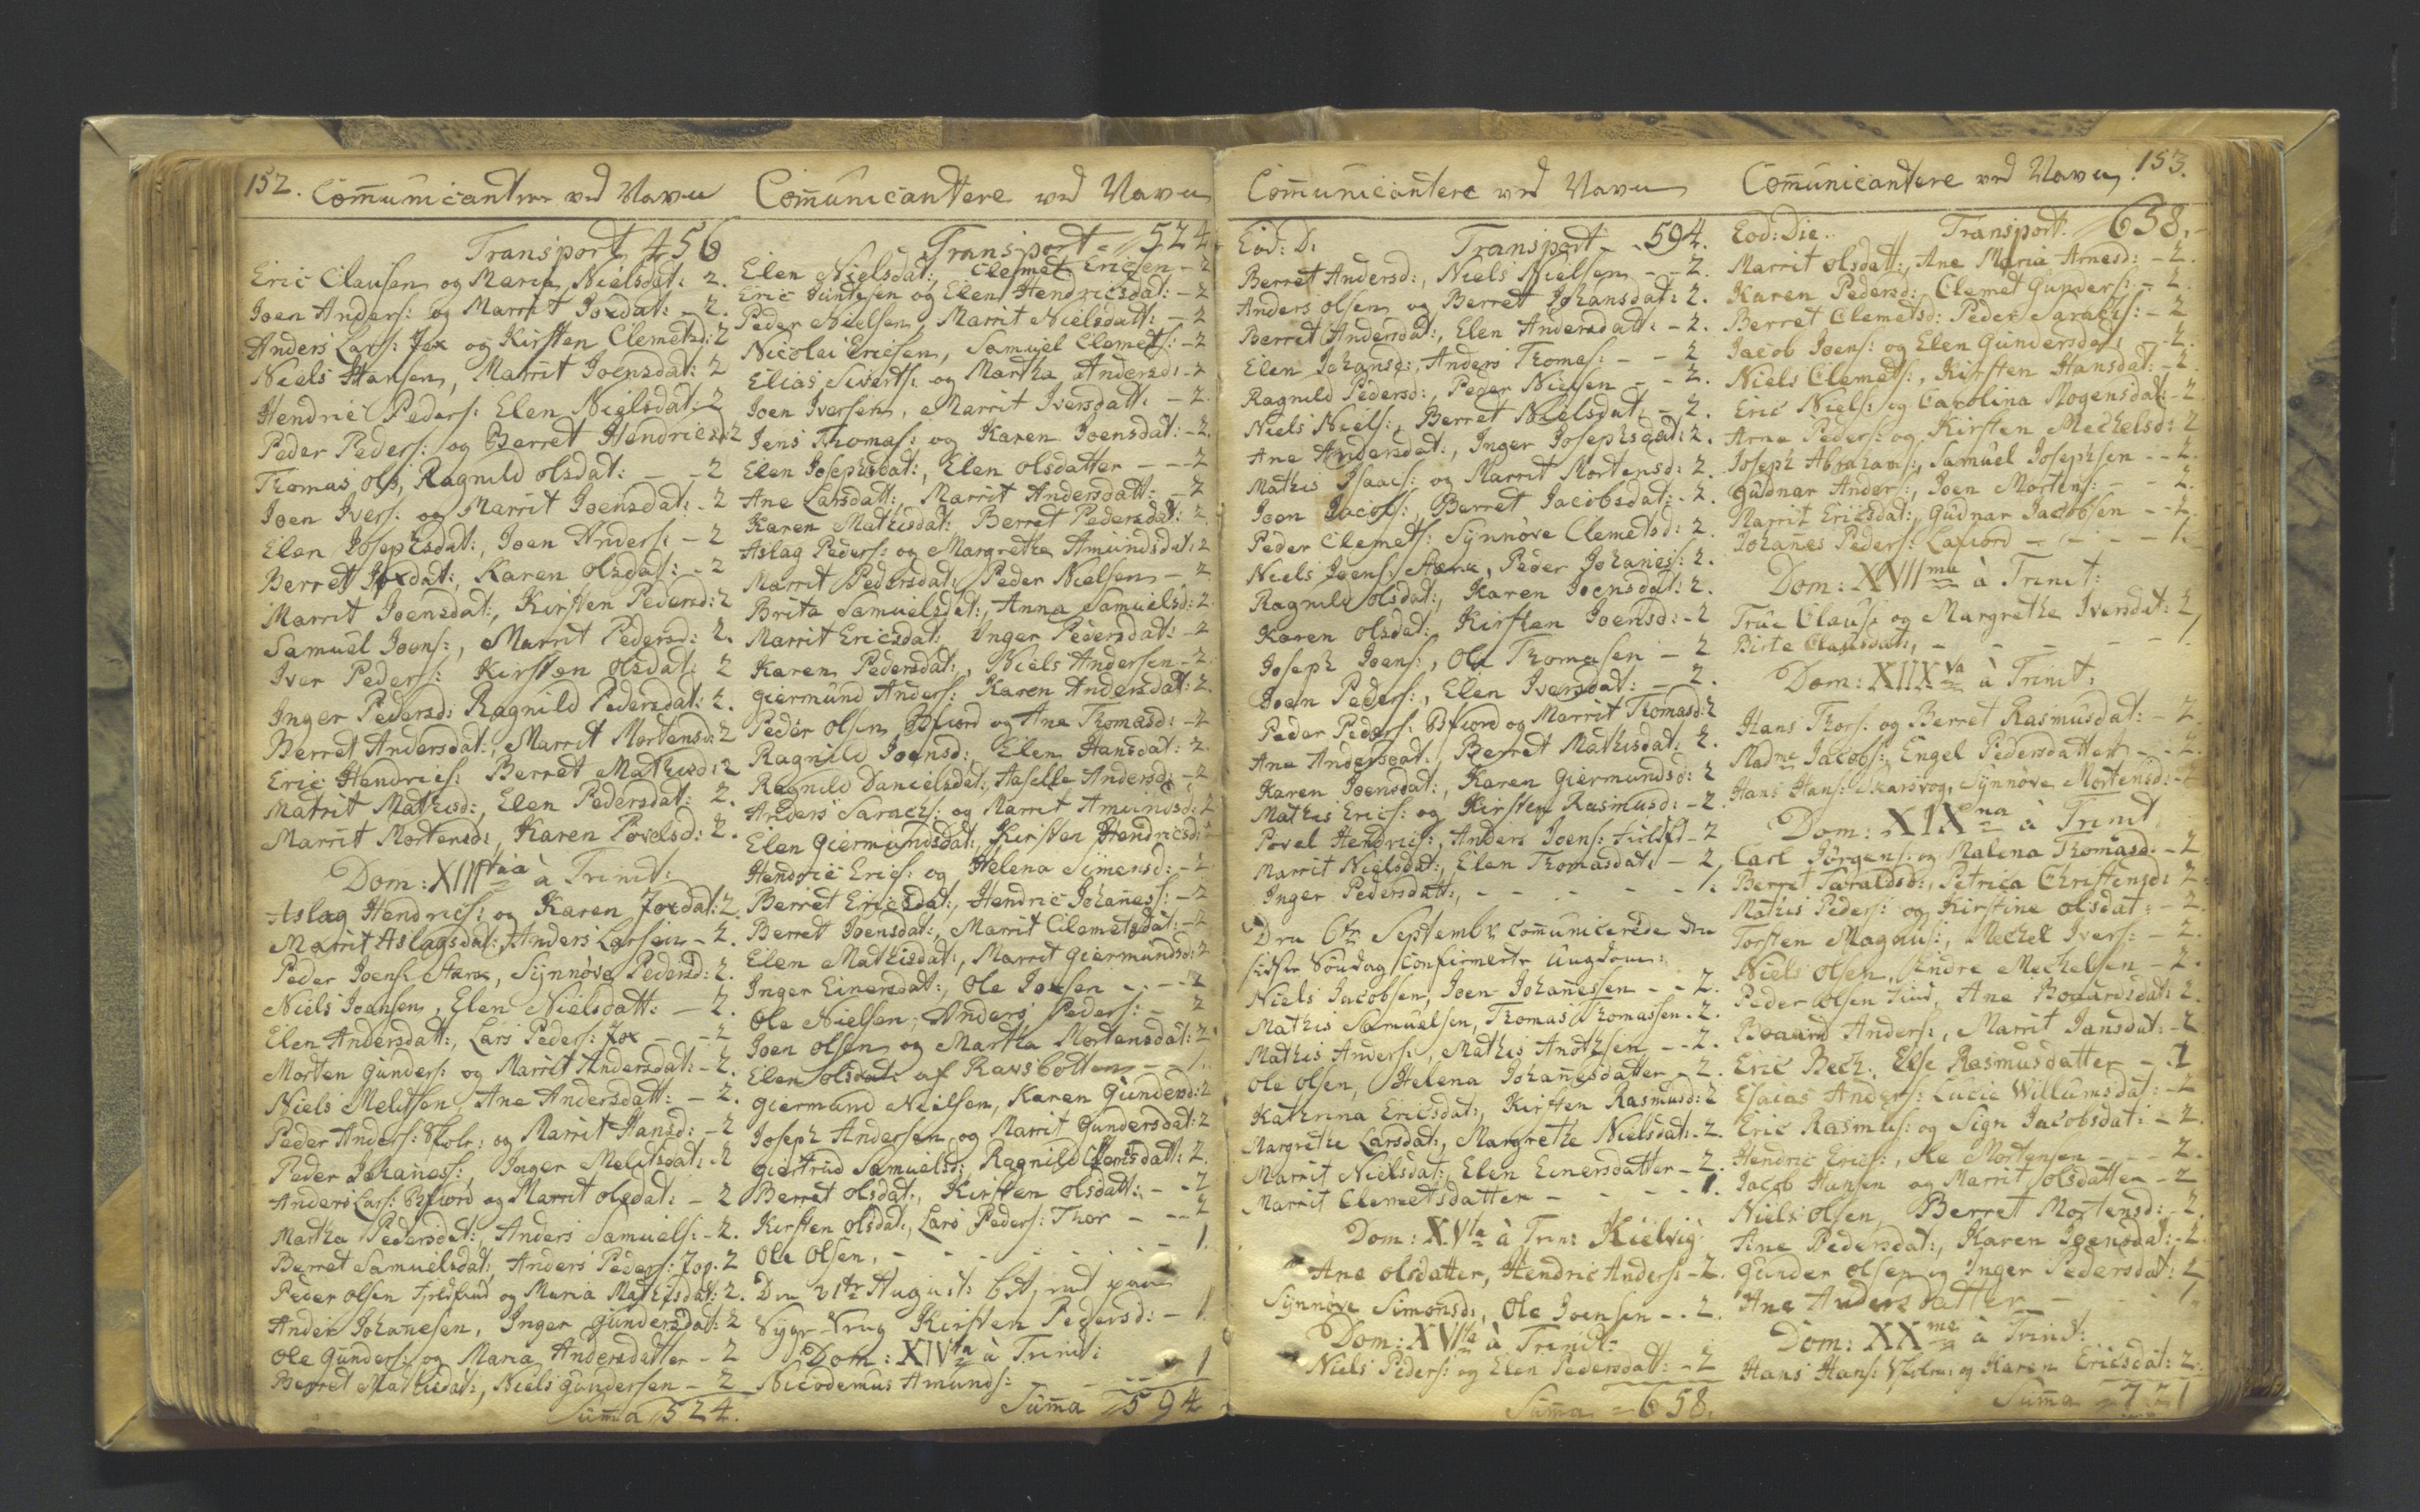 152. Com̄unicantere ved Navn
Transport 456
Eric Clausen og Maria Nielsdat: 2.
Joen Anders: og Marrit Joxdat: - 2.
Anders Lars: Jox og Kirsten Clemetsd: 2
Niels Hansen, Marrit Joensdat: 2
Hendric Peders: Elen Nielsdat: 2
Peder Peders: og Berret Hendricsd: 2
Thomas Ols, Ragnild olsdat: - - 2
Joen Ivers: og Marrit Joensdat: - 2
Elen Josephsdat:, Joen Anders: - 2
Berret Joxdat:, Karen olsdat: - 2
Marrit Joensdat:, Kirsten Pedersd: 2
Samuel Joens:, Marrit Pedersd: 2.
Iver Peders: Kirsten olsdat: 2
Inger Pedersd: Ragnild Pedersdat: 2.
Berret Andersdat:, Marrit Mortensd: 2
Eric Hendrics: Berret Mathisd: 2
Marrit Mathisd:, Elen Pedersdat: 2.
Marrit Mortensd:, Karen Povelsd: 2.
Dom: XIIItia à Trinit:
Aslag Hendrics: og Karen Joxdat: 2.
Marrit Aslagsdat:, Anders Larsen - 2.
Peder Joens: Stærk, Synnøve Pedersd: 2.
Niels Joensen, Elen Nielsdatt: - 2.
Elen Andersdatt:, Lars Peders: Jox - - 2
Morten Gunders: og Marrit Andersdat: - 2.
Niels Melitsen, Ane Andersdatt: - 2.
Peder Anders: Skole: og Marrit Hansd: - 2
Peder Johan̄es:, Inger Melitsdat: 2
Anders Lars: Bfiord og Marrit olsdat: - 2
Martha Pedersdat:, Anders Samuels: - 2.
Berret Samuelsdat, Anders Peders: Jop. 2
Peder olsen Fieldfind og Maria Mathisdat: 2.
Ander Johan̄esen, Inger Gundersdat: 2
Ole Gunders: og Maria Andersdatter - 2
Berret Mathisdat:, Niels Gundersen - 2
Sum̄a 524.
Com̄unicantere ved Navn
Transport = 524
Elen Nielsdat:, Clemet Ericsen - 2
Eric Guntesen og Elen Hendricsdat: - 2
Peder Nielsen, Marrit Nielsdatt: - 2
Nicolai Ericsen, Samuel Clemets: - 2
Elias Siverts: og Martha Andersd: - 2
Joen Iversen, Marrit Iversdatt: - 2
Jens Thomas: og Karen Joensdat: - 2.
Elen Josephsdat:, Elen olsdatter - - - 2
Ane Larsdatt:, Marrit Andersdatt: - 2
Karen Mathisdat: Berret Pedersdat: 2.
Aslag Peders: og Margrethe Amundsdat: 2
Marrit Pedersdat: Peder Nielsen - 2
Brita Samuelsdat:, Anna Samuelsd: 2.
Marrit Ericsdat:, Inger Pedersdat: - 2
Karen Pedersdat:, Niels Andersen - 2.
Giermund Anders: Karen Andersdat: 2.
Peder Olsen Bfiord og Ane Thomasd: - 2
Ragnild Joensd: Elen Hansdat: 2.
Ragnild Danielsdat:, Aaselle Andersd: - 2
Anders Sarachs: og Marrit Amundsd: 2
Elen Giermundsdat:, Kirsten Hendricsd: 2
Hendric Erics: og Helena Simensd: - 2
Berret Ericsdat:, Hendric Johan̄es: - 2
Berret Joensdat:, Marrit Clemetsdat: - 2
Elen Mathisdat:, Marrit Giermundsd: 2
Inger Einersdat:, Ole Joxsen - - - 2
Ole Nielsen, Anders Peders: - 2
Joen olsen og Martha Mortensdat: 2
Elen olsdat: af Ravsbotten - 1.
Giermund Neilsen, Karen Gundersd: 2
Joseph Andersen og Marrit Gundersdat: 2
Giertrud Samuelsd: Ragnild Clemetsdatt: 2.
Berret olsdat:, Kirsten olsdatt: - - 2
Kirsten olsdat:, Lars Peders: Thor - - - 2
Ole Olsen. - - - - - - 1.
Den 21de Augusti
Kirsten Pedersd: - 1
Dom: XIVta à Trinit:
Nicodemus Amunds: - - - 1
Sum̄a 594
Com̄unicantere ved Navn
Eod: D. Transport - 594.
Berret Andersd:, Niels Nielsen - - 2.
Anders olsen og Berret Johansdat: 2.
Berret Andersdat:, Elen Andersdatt: - 2.
Elen Johansd:, Anders Thomas: - - 2
Ragnild Pedersd:, Peder Nielsen - - 2.
Niels Niels:, Berret Nielsdat: - 2.
Ane Andersdat:, Inger Josephsdat: 2.
Mathis Isaacs: og Marrit Mortensd: 2
Joen Jacobs:, Berret Jacobsdat: - 2.
Peder Clemets: Synnøve Clemetsd: 2.
Niels Joens: Stærk, Peder Johan̄es: 2.
Ragnild olsdat:, Karen Joensdat: 2.
Karen olsdat: Kirsten Joensd: - 2
Joseph Joens:, Ole Thomasen - 2
Joen Peders:, Elen Iversdat: - 2.
Peder Peders: Bfiord og Marrit Thomasd: 2
Ane Andersdat:, Berret Mathisdat: 2.
Karen Joensdat:, Karen Giermundsd: 2
Mathis Erics: og Kirsten Rasmusd: - 2.
Povel Hendrics:, Anders Joens: - 2
Marrit Nielsdat:, Elen Thomasdat: - 2
Inger Pedersdatt:, - - - - - 1.
Den 6te Septembr com̄unicerede den
sidste Søndag confirmerte Ungdom:
Niels Jacobsen, Joen Johan̄essen - - 2.
Mathis Samuelsen, Thomas Thomassen. 2.
Mathis Anders:, Mathis Andersen - - 2.
Ole Olsen, Helena Johan̄esdatter - 2.
Kathrina Ericsdat:, Kirsten Rasmusd: 2
Margrethe Larsdat:, Margrethe Nielsdat: - 2
Marrit Nielsdat:, Elen Einersdatter - 2.
Marrit Clemetsdatter - - - - 1.
Dom: XVta à Trin: Kielvig
Ane olsdatter, Hendric Anders: - 2.
Synnøve Simonsd:, Ole Joensen - - 2.
Dom: XVIta à Trinit:
Niels Peders: og Elen Pedersdatt: - 2
Sum̄a = 658.
Com̄unicantere ved Navn 153.
Eod: Die. Transport. 658.
Marrit olsdatt:, Ane Maria Arnesd: - 2.
Karen Pedersd:, Clemet Gunders: - 2.
Berret Clemetsd: Peder Sarachs: - 2
Jacob Joens: og Elen Gundersdat: - 2.
Niels Clemets:, Kirsten Hansdat: - 2.
Eric Niels: og Carolina Mogensdat: - 2
Arne Peders: og Kirsten Mechelsd: 2
Joseph Abrahams:, Samuel Josephsen - - 2.
Gudnar Anders:, Joen Mortens: - - 2.
Marrit Ericsdat:, Gudnar Jacobsen - - 2.
Johan̄es Peders: Laxfiord - - - - 1.
Dom: XVIIma à Trinit:
True Claus: og Margrethe Iversdat: 2,
Birte Clausdat:, - - - - - 1
Dom: XIIXva à Trinit:
Hans Thors: og Berret Rasmusdat: - 2.
Madme Jacobs:, Engel Pedersdatter - - 2.
Hans Hans: Skarsvog, Synnøve Mortensd: - 2
Dom: XIXna à Trinit
Carl Jørgens: og Malena Thomasd. - 2
Berret Taraldsd:, Petrica Christensd: 2
Mathis Peders: og Kirstine olsdat: - 2.
Torsten Magnus:, Mechel Ivers: - 2.
Niels Olsen, Andre Mechelsen - 2.
Peder olsen Find, Ane Bouardsdat: 2.
Bouard Anders:, Marrit Jansdat: - 2
Eric Bech:, Else Rasmusdatter - 2
Esaias Anders: Lucie Willumsdat: - 2
Eric Rasmus: og Sign Jacobsdat: - 2.
Hendric Erics:, Ole Mortensen - - - 2.
Jacob Hansen og Marrit olsdatter - 2
Niels olsen, Berret Mortensd: - 2.
Ane Pedersdat:, Karen Joensdat: - 2.
Gunder olsen og Inger Pedersdat: 2
Ane Andersdatter - - - 1
Dom: XXma à Trinit:
Hans Hans: og Karen Ericsdat: 2.
Sum̄a 721